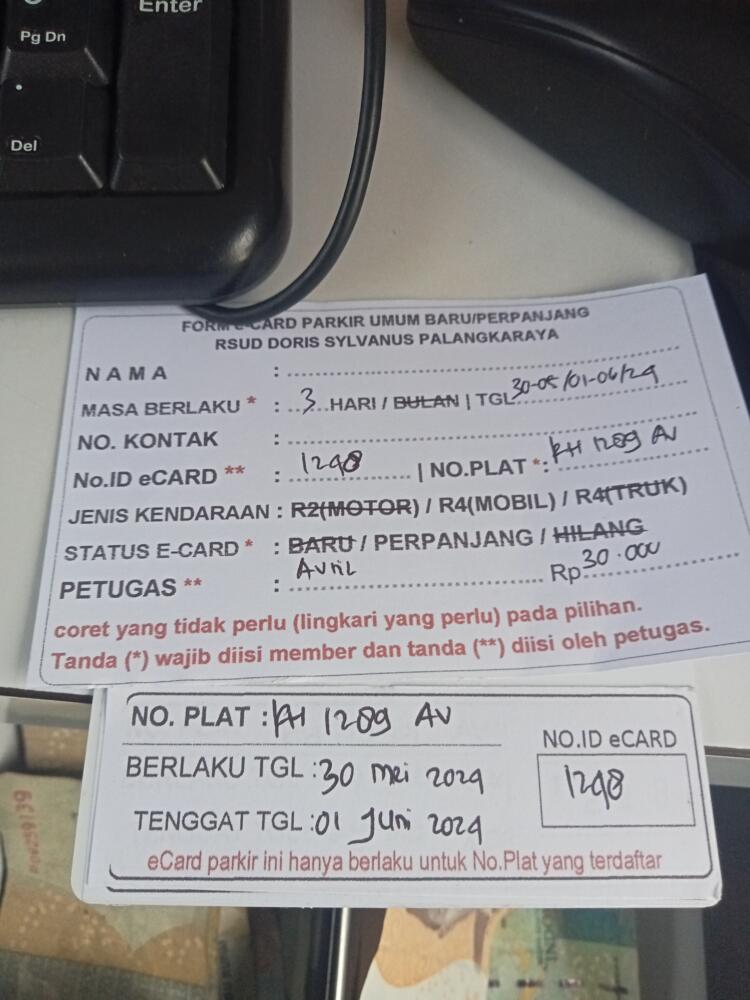 Enter
Pg Dn
Del
FORM e-CARD PARKIR UMUM BARU/PERPANJANG
RSUD DORIS SYLVANUS PALANGKARAYA
NAMA :
MASA BERLAKU * : 3 HARI / BULAN | TGL 30-05/01-06/24
NO. KONTAK :
No.ID eCARD ** : 1298 | NO.PLAT *: KH 1289 AV
JENIS KENDARAAN : R2(MOTOR) / R4(MOBIL) / R4(TRUK)
STATUS E-CARD * : BARU / PERPANJANG / HILANG
PETUGAS ** : Avril Rp 30.000
coret yang tidak perlu (lingkari yang perlu) pada pilihan.
Tanda (*) wajib diisi member dan tanda (**) diisi oleh petugas.
NO. PLAT : KH 1289 AV
NO.ID eCARD
BERLAKU TGL : 30 mei 2024
1298
TENGGAT TGL : 01 Juni 2024
eCard parkir ini hanya berlaku untuk No.Plat yang terdaftar